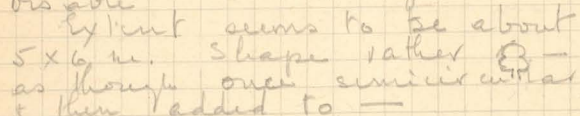 Extent seems to be about
5 x 6 m. Shape rather —
as though once semicircular
& then added to —